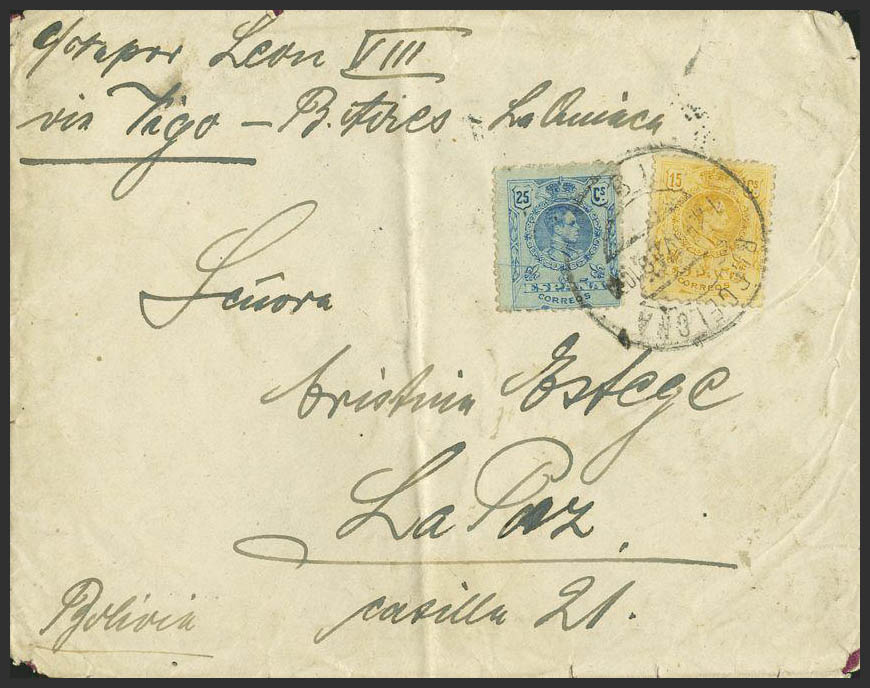 c/vapor Leon XIII
via Vigo - B. Aires - La Quiaca
25 Cs
ESPAÑA
CORREOS
15 Cs
CORREOS
BARCELONA
Señora
Cristina Estege
La Paz.
casilla 21.
Bolivia